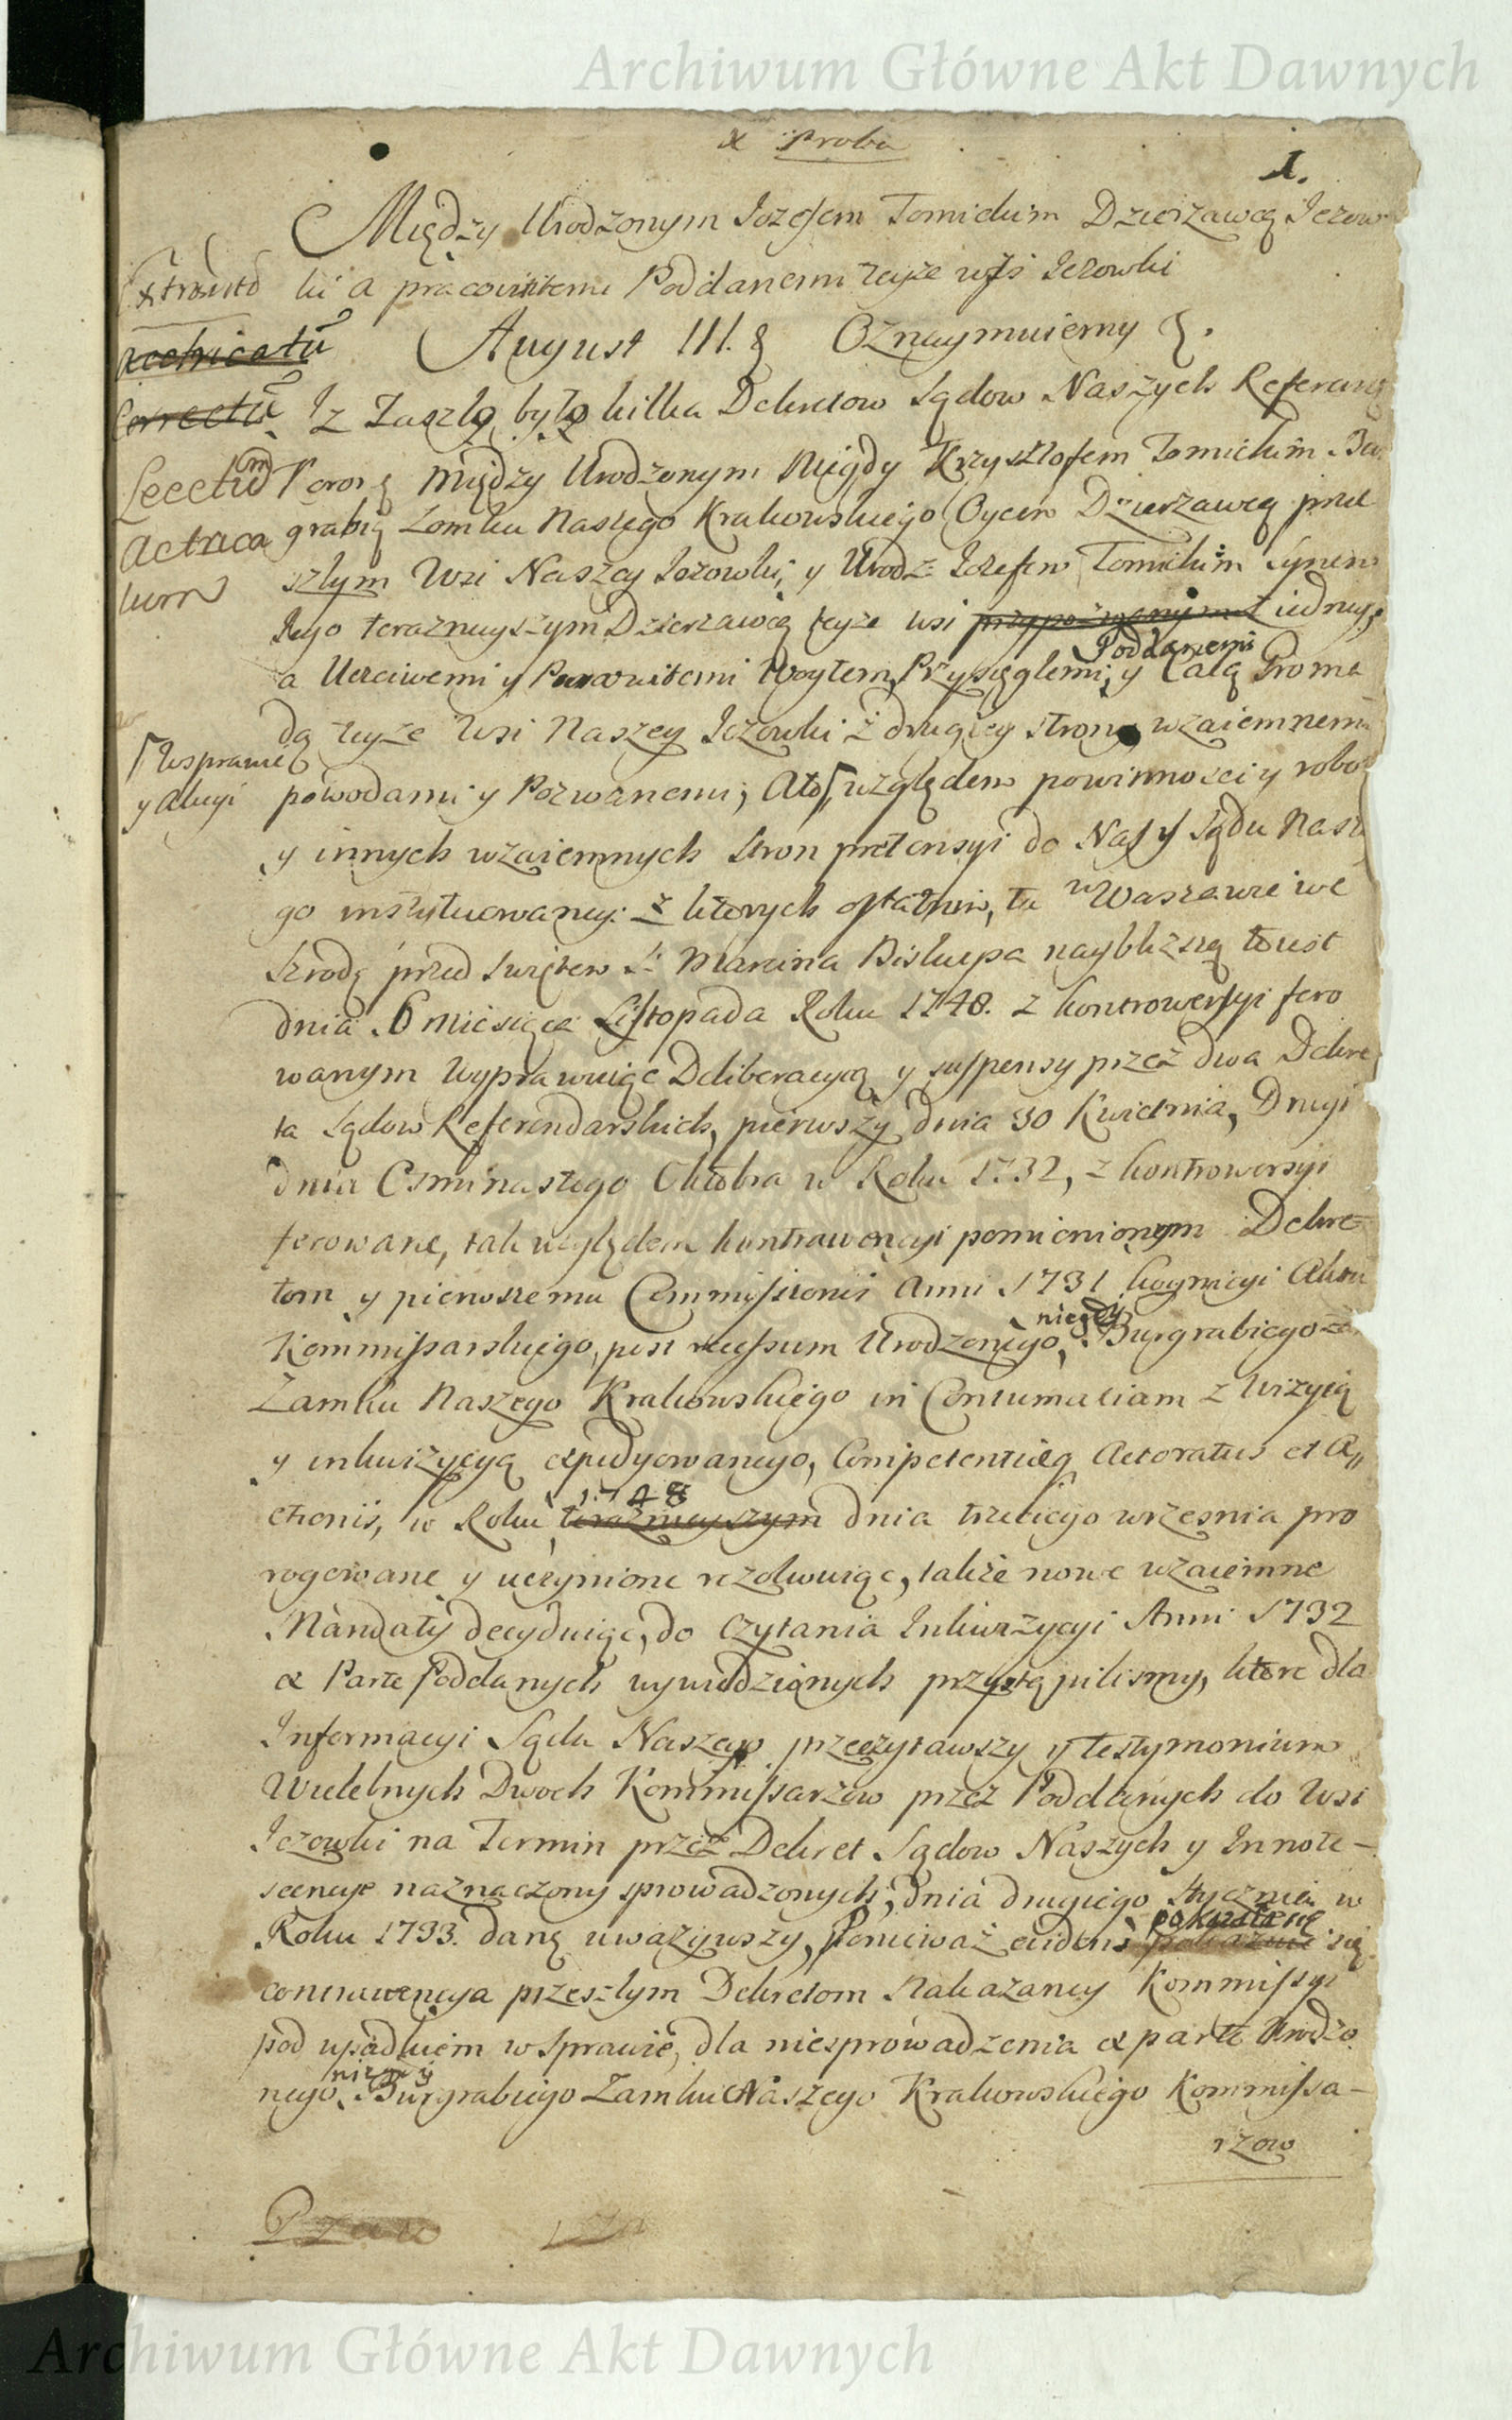 Archiwum Główne Akt Dawnych
x Proba
1.
Między Urodzonym Jozefem Tomickim Dzierzawcą Jezow
ki a pracowitemi Poddanemi teyze wsi Jezowki
Extractu
rectricatu
August III. & Oznaymuiemy &.
Correctu
Iz Zaszło było kilka Dekretow Sądow Naszych Referen
Lecctu
Między Urodzonym Niegdy Krzysztofem Tomickim Bur
grabią Zamku Naszego Krakowskiego Oycem Dzierzawcą prze
szlym Wsi Naszey Jezowki, y Urodz: Jozefem Tomickim Synem
Jego teraznieyszym Dzierzawcą teyze wsi z iedney,
Poddanemi
a Uczciwemi y Pracowitemi Woytem, Przysięglemi, y Całą Groma
dą teyze Wsi Naszey Jezowki z drugiey strony, wzaiemnemi
w sprawie
y długi
powodami y Pozwanemi, Ato, względem powinnosci y robo
y innych wzaiemnych stron pretensyi do Nas y Sądu Nasze
go instytuowaney: z ktorych ostatnim, tu w Warszawie we
Szrodę przed Swiętem S. Marcina Biskupa naybliższą to iest
dnia 6 Miesiąca Listopada Roku 1748. z kontrowersyi fero
wanym wyprawuiąc Deliberacyą y suspensy przez dwa Dekre
ta Sądow Referendarskich, pierwszy dnia 30 Kwietnia, Drugi
dnia Osminastego Oktobra w Roku 1732, z kontrowersyi
ferowane, tak względem kontrawencyi pomienionym Dekre
tom y pierwszemu Commissionis Anni 1731 Aktu
niegdy
Kommissarskiego, post recessum Urodzonego, Burgrabiego
Zamku Naszego Krakowskiego in Contumaciam z wizyią
y inkwizycyą expedyowanego, Competentią Actoratus et A
1748
ctionis, w Roku teraznieyszym dnia trzeciego wrzesnia pro
rogowane y uczynione rezolwuiąc, także nowe wzaiemne
Mandaty decyduiąc, do czytania Inkwizycyi Anni 1732
ex Parte Poddanych wywiedzionych przystąpilismy, ktore dla
Informacyi Sądu Naszego przeczytawszy y testymonium
Wielebnych Dwoch Kommissarzow przez Poddanych do Wsi
Jezowki na Termin przez Dekret Sądow Naszych y Innote-
scencye naznaczony sprowadzonych, dnia drugiego stycznia w
Roku 1733. daną uwazywszy, Poniewaz evidens się
contrawencya przeszłym Dekretom Nakazaney Kommissyi
pod upadkiem w sprawie, dla niesprowadzenia ex parte Urodzo
niegdy
nego Burgrabiego Zamku Naszego Krakowskiego Kommissa-
rzow
Archiwum Główne Akt Dawnych